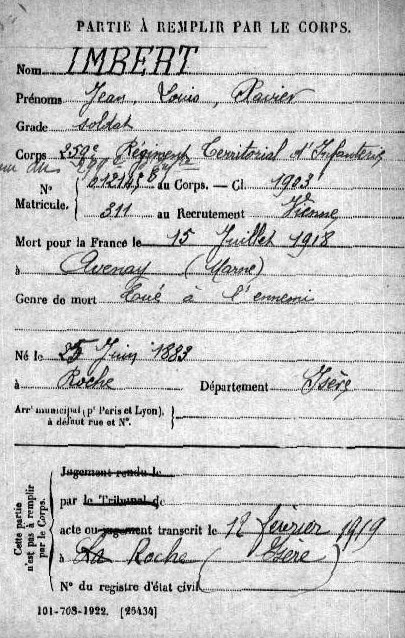 PARTIE À REMPLIR PAR LE CORPS.
Nom IMBERT
Prénoms Jean, Louis, Xavier
Grade soldat
Corps 259e Régiment Territorial d'Infanterie
Nº au Corps. — Cl. 1903
Matricule. 311 au Recrutement Vienne
Mort pour la France le 15 Juillet 1918
à Avenay (Marne)
Genre de mort Tué à l'ennemi
Né le 25 Juin 1883
à Roche Département Isère
Arrt municipal (pr Paris et Lyon),
à défaut rue et Nº.
Cette partie
n'est pas à remplir
par le Corps.
Jugement rendu le
par le Tribunal de
acte ou jugement transcrit le 12 février 1919
à La Roche (Isère)
Nº du registre d'état civil
101-708-1922. [25434]